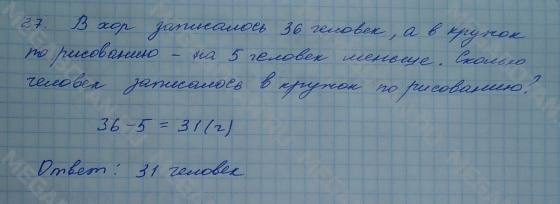 27. В хор записалось 36 человек, а в кружок
по рисованию - на 5 человек меньше. Сколько
человек записалось в кружок по рисованию?
36-5 = 31(ч)
Ответ: 31 человек